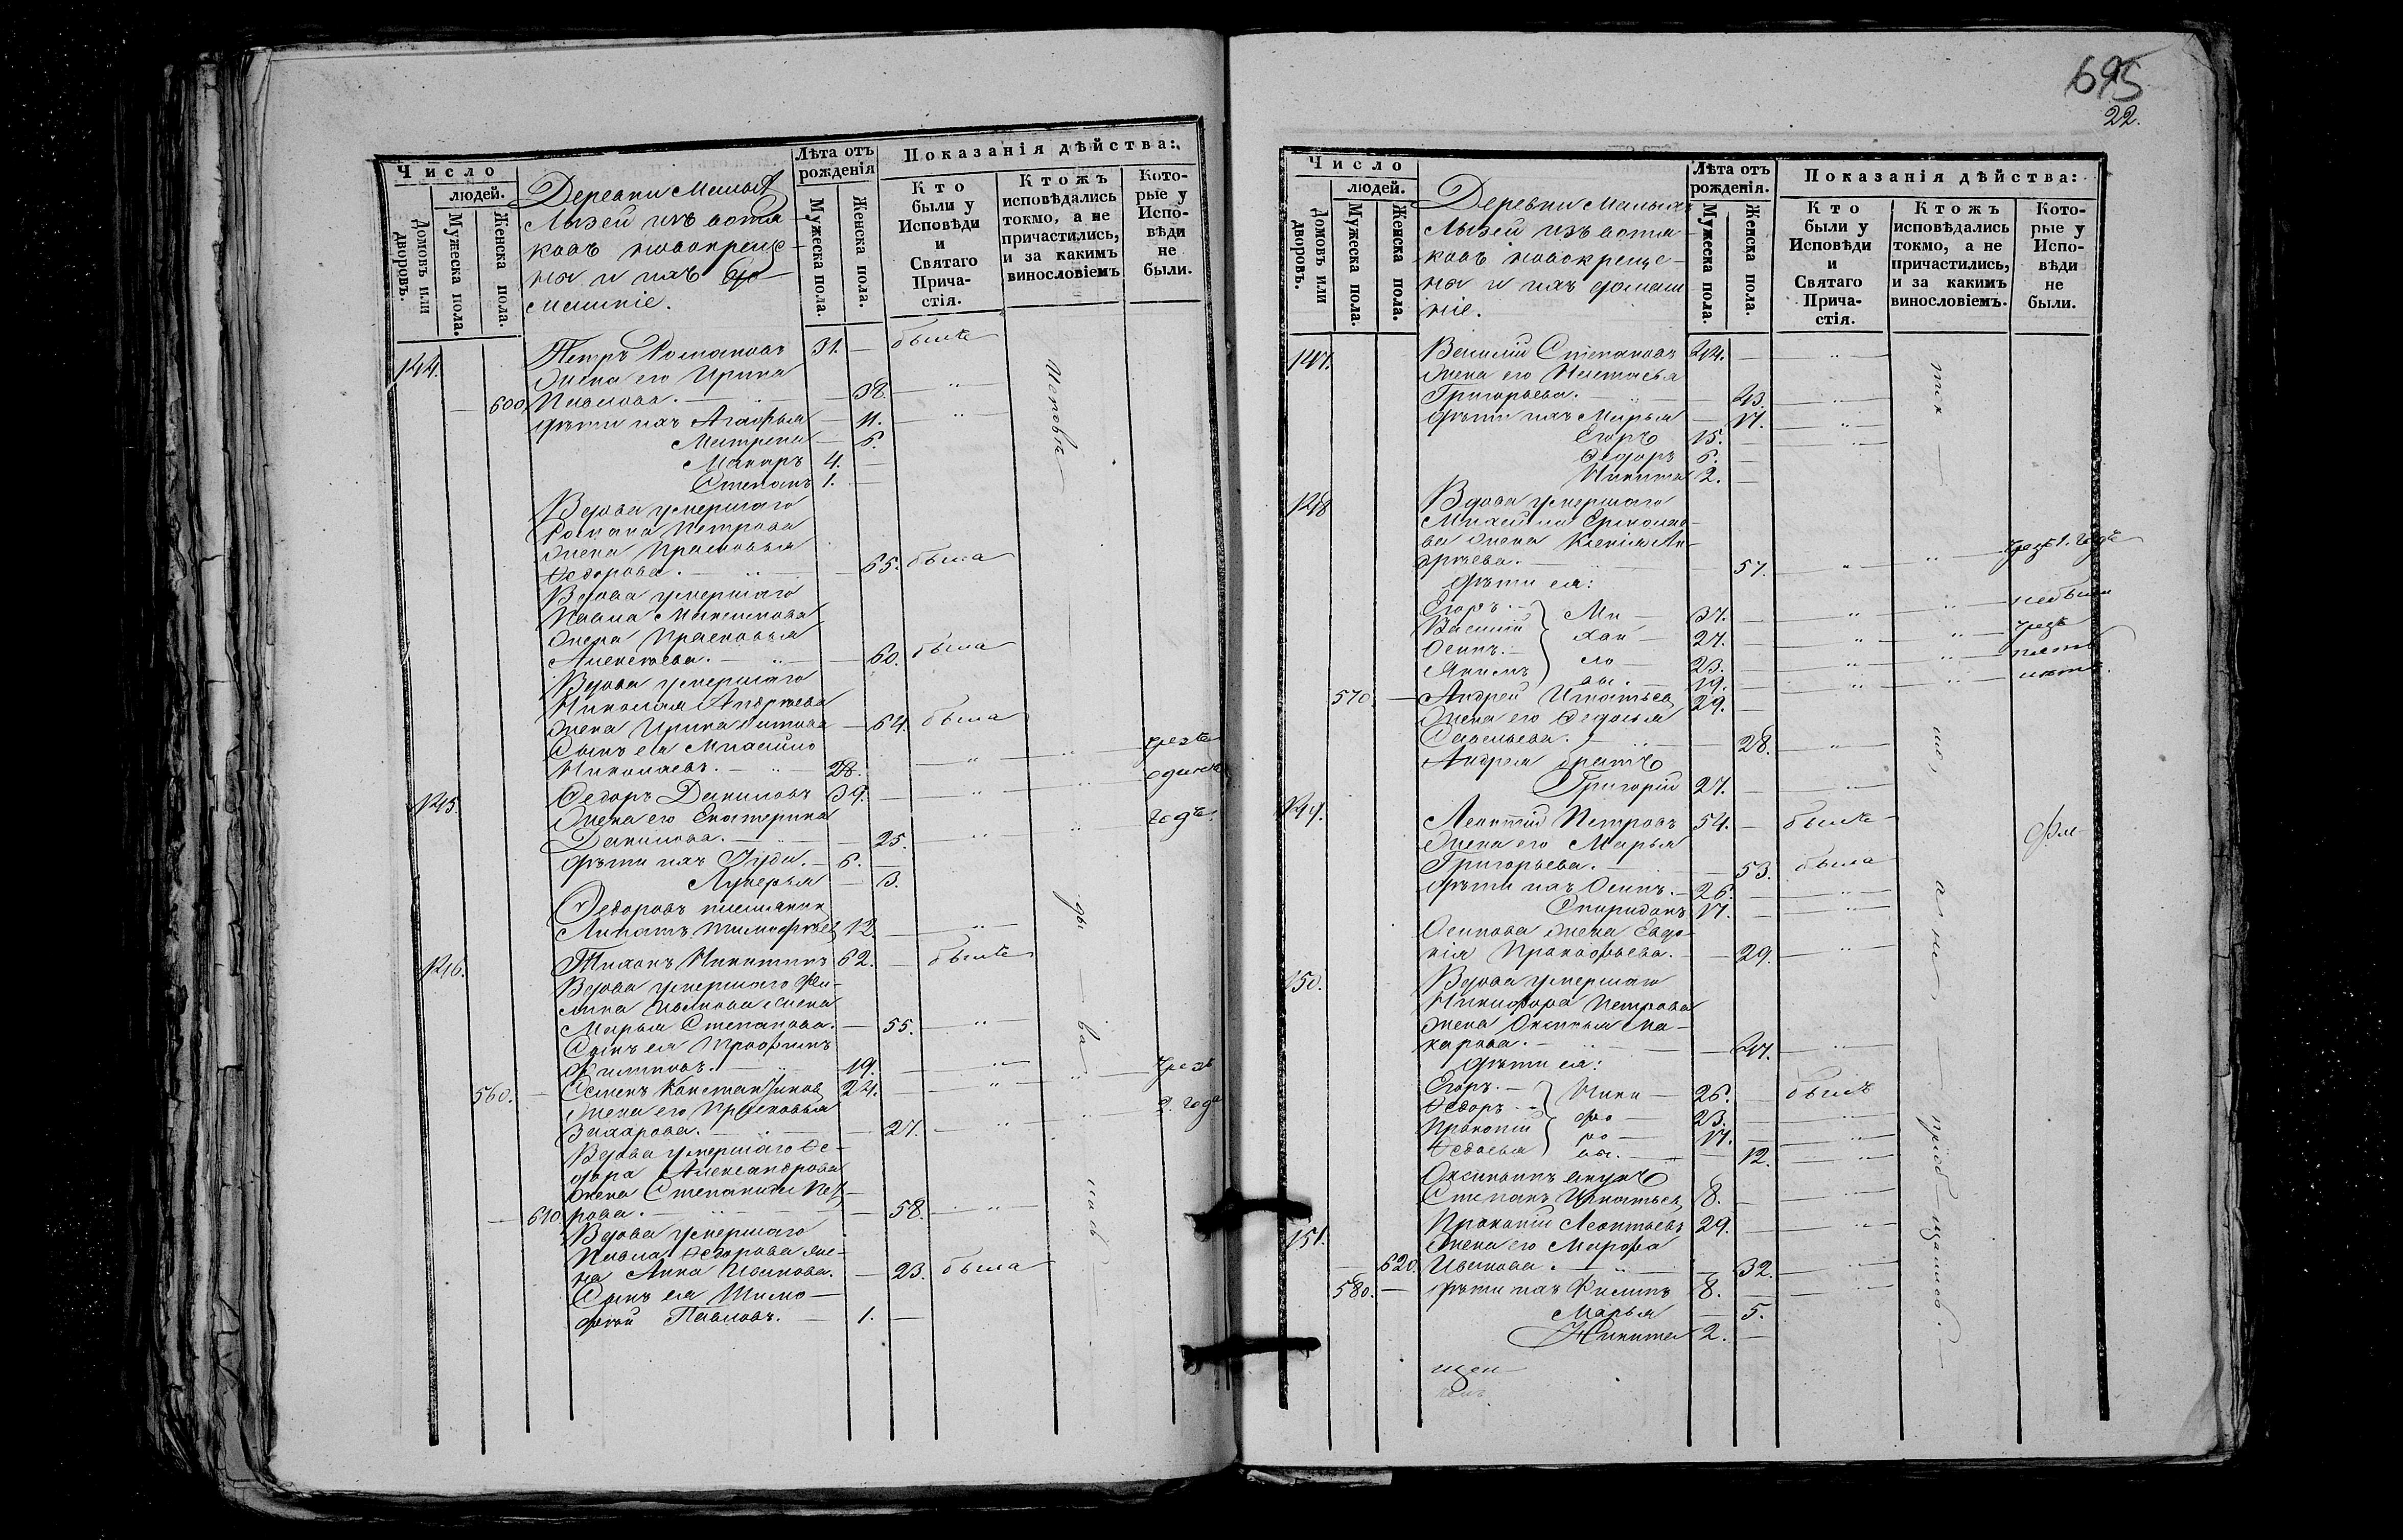 Число
людей.
Домовъ или дворовъ.
Мужеска пола.
Женска пола.
Деревни Малыхъ
Лызей изъ вотя-
ковъ новокреще-
ны и ихъ до-
машніе.
Лѣта отъ рожденія
Мужеска пола.
Женска пола.
Показанія дѣйства:
Кто были у Исповѣди и Святаго Прича-стія.
Ктожъ исповѣдались токмо, а не причастились, и за какимъ винословіемъ
Кото-рые у Испо-вѣди не были.
144. Петръ Романовъ 31. — былъ
Жена его Ирина
— 600 Павлова. — 38. — „ —
Дѣти ихъ Агафья — 11. — „ —
Матрена — 6.
Макаръ 4. —
Степанъ 1. —
Вдова умершаго
Романа Петрова
жена Прасковья
Ѳедорова. — „ — 65. была
Вдова умершаго
Павла
жена Прасковья
Алексѣева. — „ — 60. была
Вдова умершаго
Николая Андреева
жена Ирина — 64. была
Сынъ ея Михайло
Николаевъ. — „ — 28. — „ — „ — чрезъ
145. Ѳедоръ Даниловъ 39. — „ — „ — одинъ
Жена его Екатерина
Данилова. — 25. — „ — „ — годъ.
Дѣти ихъ Іуда. — 6. —
Лукерья — 3.
Ѳедоровъ племянник
Липатъ Тимофѣев 12. — „ —
146. Тихонъ Никитинъ 62. — былъ
Вдова умершаго Фи-
липа Иванова жена
Марья Степанова. — 55. — „ —
Сынъ ея Трофимъ
Филиповъ. — „ — 19. — „ —
560. — Семенъ Константинов 24. — „ — „ — чрезъ
Жена его Прасковья
Захарова. — 27. — „ — „ — 2. года
Вдова умершаго Ѳе-
дора Александрова
жена Степанида Пет-
— 610. рова. — „ — 58. — „ —
Вдова умершаго
Павла Ѳедорова же-
на Анна Иванова. — 23. была
Сынъ ея Тимо-
фей Павловъ. — 1. —
695
22.
Число
людей.
Домовъ или дворовъ.
Мужеска пола.
Женска пола.
Деревни Малыхъ
Лызей изъ вотя-
ковъ новокреще-
ны и ихъ домаш
ніе.
Лѣта отъ рожденія.
Мужеска пола.
Женска пола.
Показанія дѣйства:
Кто были у Исповѣди и Святаго Прича-стія.
Ктожъ исповѣдались токмо, а не причастились, и за какимъ винословіемъ.
Кото-рые у Испо-вѣди не были.
147. Василій Степановъ 44. — „ —
Жена его Настасья
Григорьева. — „ — 43. — „ —
Дѣти ихъ Марья — 17. — „ —
Егоръ 15. — „ —
Ѳедоръ 6. —
Никита 2. —
148 Вдова умершаго
Михайла
ва жена Ксенія Ан-
дреева. — „ — 57. — „ — „ — чрезъ 1. годъ
Дѣти ея:
Егоръ. — Ми — 37. — „ — „ — небыли
Василій хай — 27. — „ — „ — чрезъ
Осипъ. — ло — 23. — „ — „ — пять
Якимъ вы. — 19. — „ — „ — лѣтъ.
570. — Андрей Игнатьев 29. —
Жена его Ѳедосья
Савельева. — „ — 28. — „ —
Андрея братъ
Григорій 27. — „ —
149. Леонтій Петровъ 54. — былъ
Жена его Марья
Григорьева. — 53. была
Дѣти ихъ Осипъ. — 26. — „ —
Спиридонъ 17. — „ —
Осипова жена Евдо-
кія Прокофьева. — 29. — „ —
150. Вдова умершаго
Никифора Петрова
жена Оксинья Ма-
карова. — „ — 47. — „ —
Дѣти ея:
Егоръ. — Ники — 26. — былъ
Ѳедоръ. — фо — 23. — „ —
Прокопій ро — 17. — „ —
Ѳедосья вы. — 12. — „ —
Оксиньинъ внукъ
Степанъ Игнатьев 8. — „ —
151. Прокопій Леонтьевъ 29. — „ —
Жена его Марфа
— 620. Иванова. — „ — 32. — „ —
580. — Дѣти ихъ Филипъ 8. — „ —
Марья — 5.
Никита 2. —